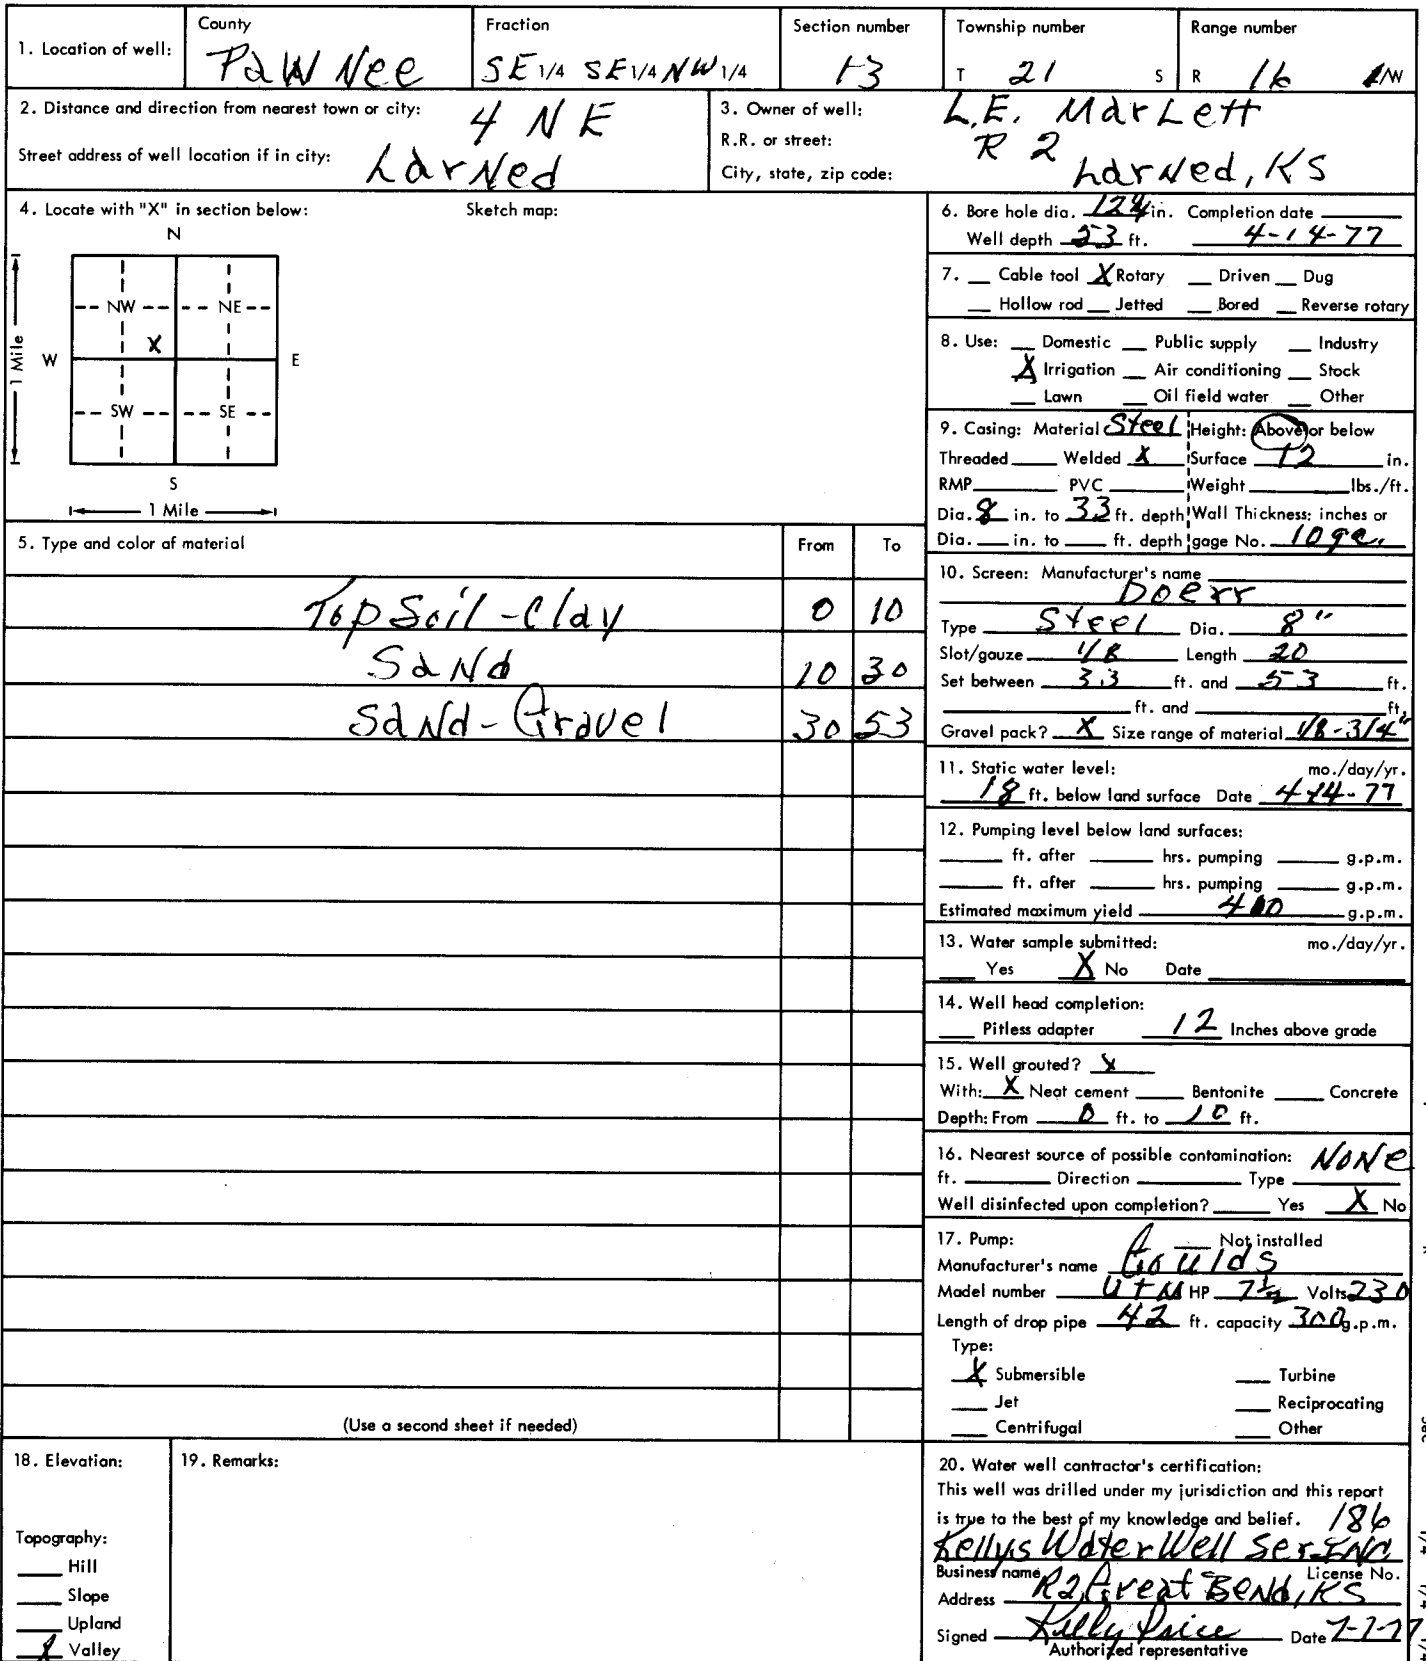 1. Location of well: County Fraction Section number Township number Range number
PaWNee SE 1/4 SE 1/4 NW 1/4 13 T 21 S R 16 E/W
2. Distance and direction from nearest town or city: 4 NE
Street address of well location if in city: LarNed
3. Owner of well: L.E. MarLett
R.R. or street: R 2
City, state, zip code: LarNed, KS
4. Locate with "X" in section below: Sketch map:
N
NW NE
X
W E
SW SE
S
1 Mile
1 Mile
5. Type and color of material From To
Top Soil - Clay 0 10
SaNd 10 30
SaNd - Gravel 30 53
(Use a second sheet if needed)
6. Bore hole dia. in. Completion date
Well depth 53 ft. 4-14-77
7. Cable tool X Rotary Driven Dug
Hollow rod Jetted Bored Reverse rotary
8. Use: Domestic Public supply Industry
X Irrigation Air conditioning Stock
Lawn Oil field water Other
9. Casing: Material Steel Height: Above or below
Threaded Welded X Surface 12 in.
RMP PVC Weight lbs./ft.
Dia. 8 in. to 33 ft. depth Wall Thickness: inches or
Dia. in. to ft. depth gage No. 10 ga.
10. Screen: Manufacturer's name
Doerr
Type Steel Dia. 8"
Slot/gauze 1/8 Length 20
Set between 33 ft. and 53 ft.
ft. and ft.
Gravel pack? X Size range of material 1/8-3/4"
11. Static water level: mo./day/yr.
18 ft. below land surface Date 4-14-77
12. Pumping level below land surfaces:
ft. after hrs. pumping g.p.m.
ft. after hrs. pumping g.p.m.
Estimated maximum yield g.p.m.
13. Water sample submitted: mo./day/yr.
Yes X No Date
14. Well head completion:
Pitless adapter 12 Inches above grade
15. Well grouted? X
With: X Neat cement Bentonite Concrete
Depth: From 0 ft. to 10 ft.
16. Nearest source of possible contamination: NONe
ft. Direction Type
Well disinfected upon completion? Yes X No
17. Pump: Not installed
Manufacturer's name Goulds
Model number HP 7 1/2 Volts 230
Length of drop pipe 42 ft. capacity 300 g.p.m.
Type:
X Submersible Turbine
Jet Reciprocating
Centrifugal Other
18. Elevation:
Topography:
Hill
Slope
Upland
X Valley
19. Remarks:
20. Water well contractor's certification:
This well was drilled under my jurisdiction and this report
is true to the best of my knowledge and belief. 186
Kellys Water Well Ser. INC
Business name License No.
Address R2 Great BeNd, KS
Signed Kelly Price Date 7-7-77
Authorized representative